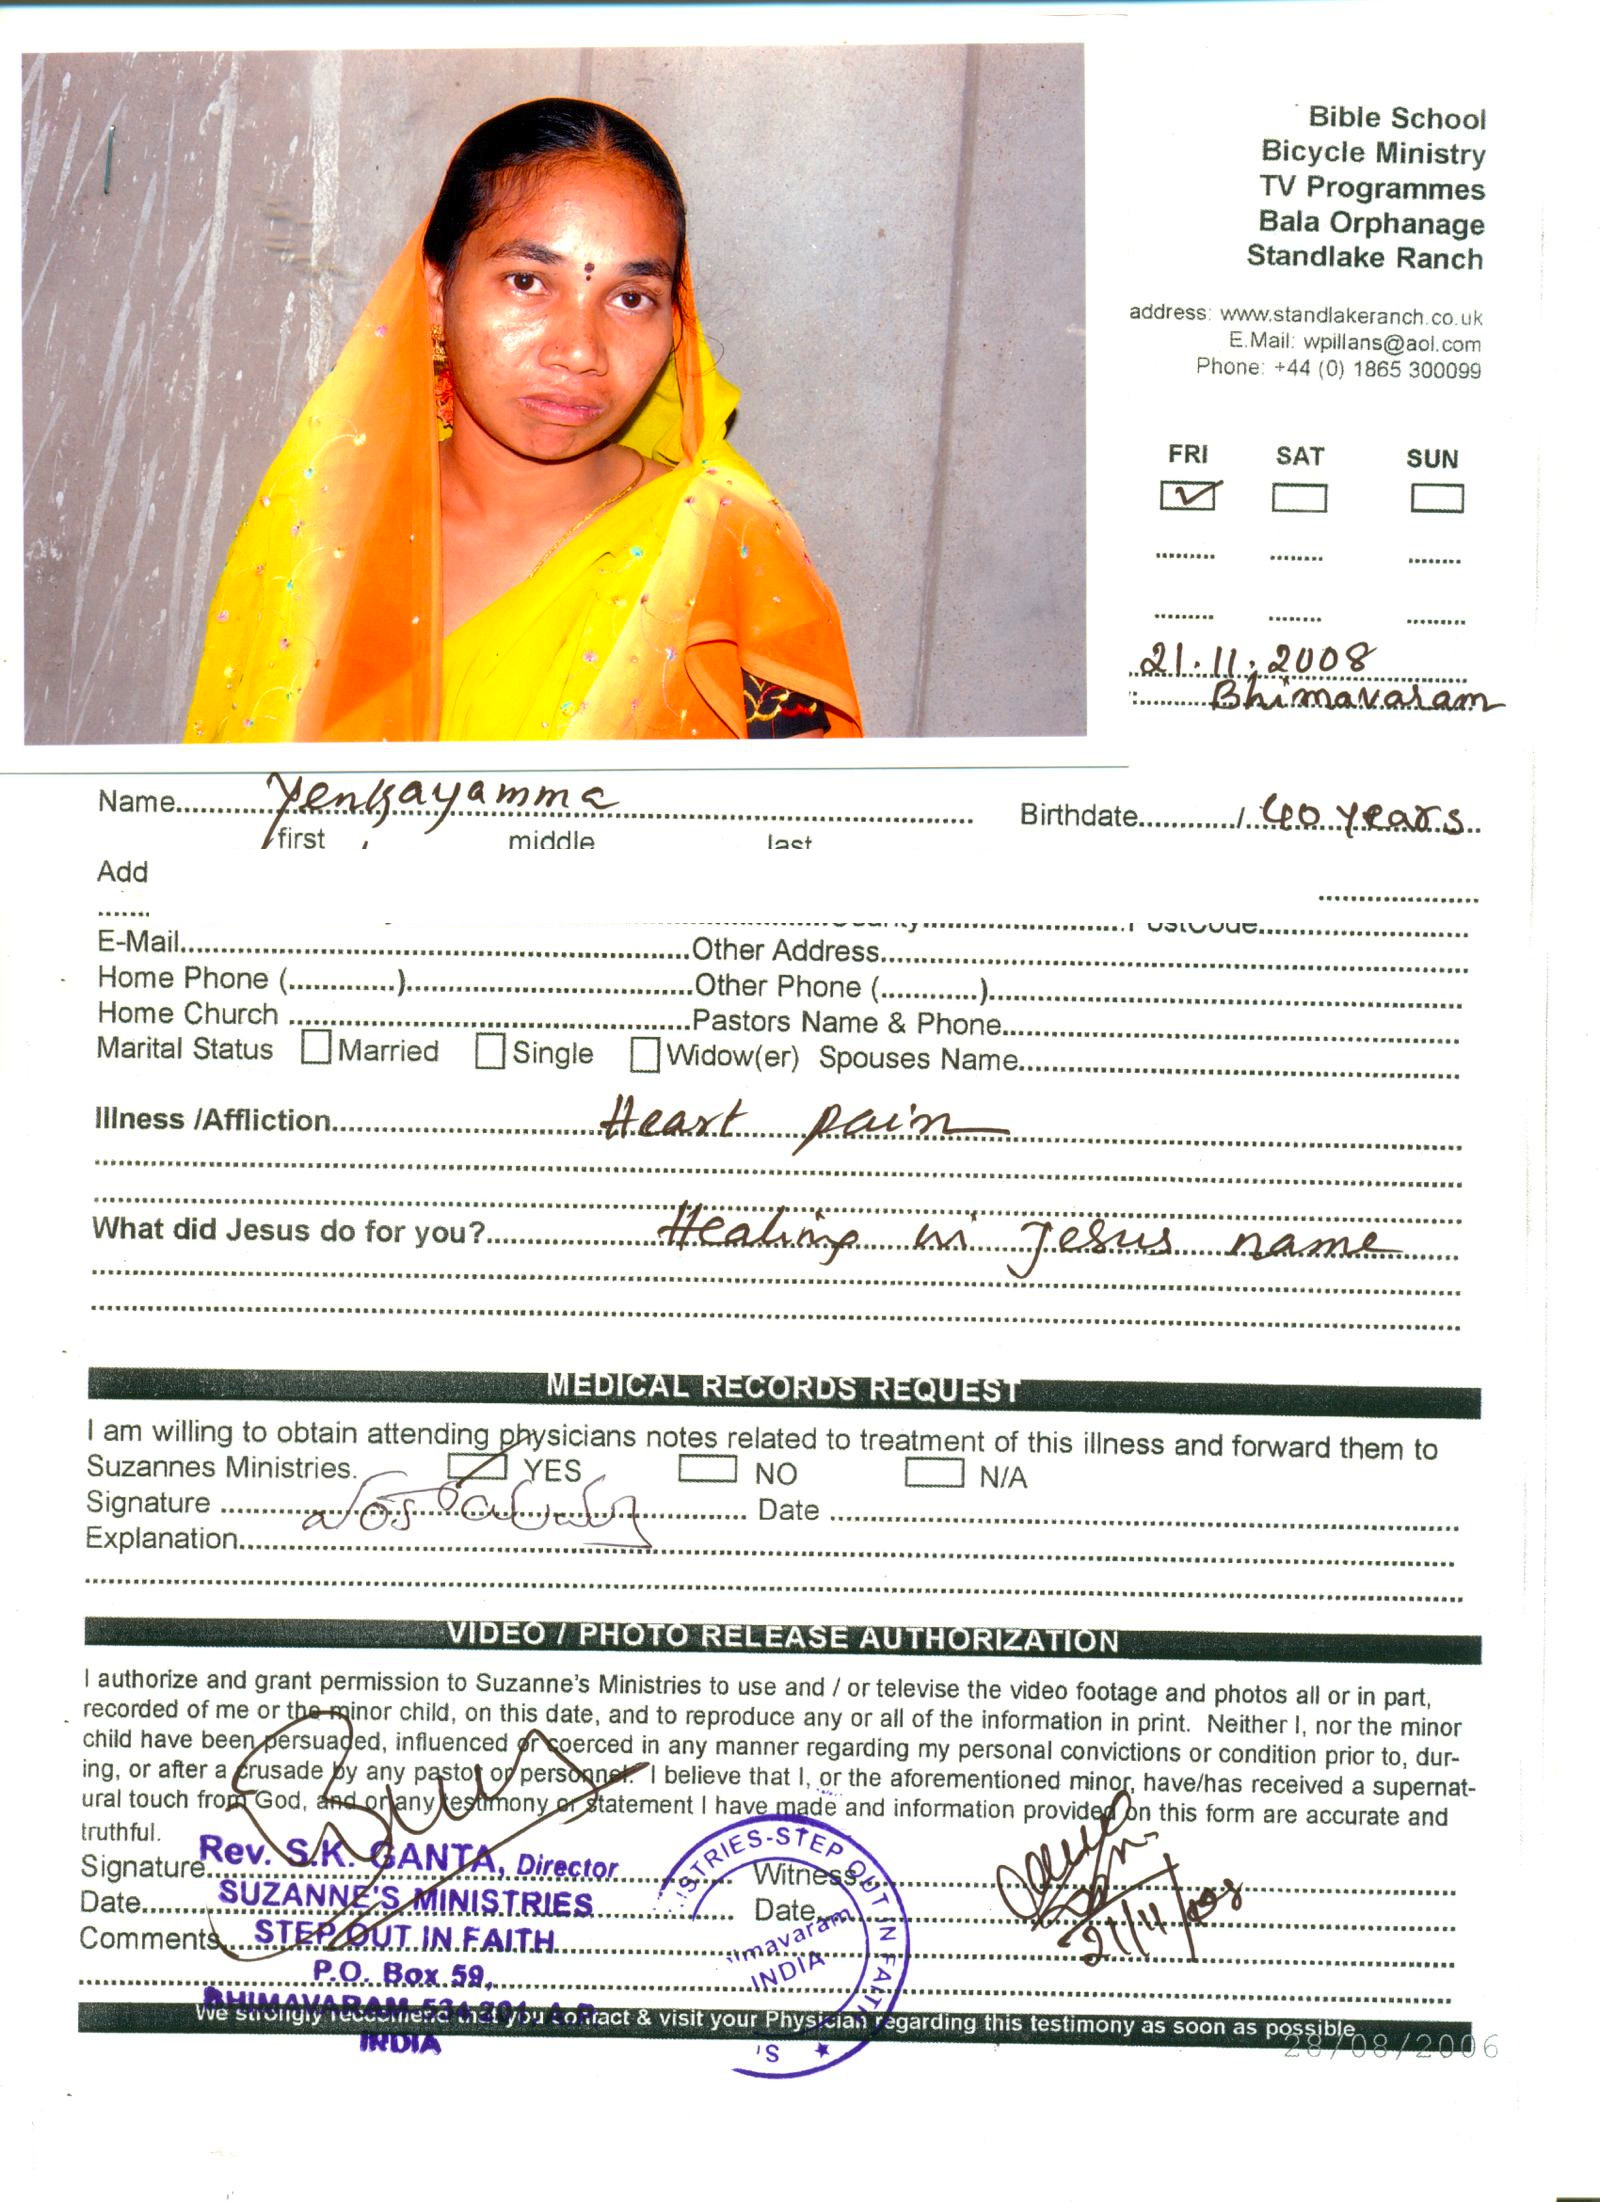 Bible School
Bicycle Ministry
TV Programmes
Bala Orphanage
Standlake Ranch
address: www.standlakeranch.co.uk
E.Mail: wpillans@aol.com
Phone: +44 (0) 1865 300099
FRI SAT SUN
21.11.2008
Bhimavaram
Name Yenkayamma Birthdate / 40 years
first middle last
Add
PostCode
E-Mail Other Address
Home Phone ( ) Other Phone ( )
Home Church Pastors Name & Phone
Marital Status Married Single Widow(er) Spouses Name
Illness /Affliction Heart pain
What did Jesus do for you? Healing in Jesus name
MEDICAL RECORDS REQUEST
I am willing to obtain attending physicians notes related to treatment of this illness and forward them to
Suzannes Ministries. YES NO N/A
Signature Date
Explanation
VIDEO / PHOTO RELEASE AUTHORIZATION
I authorize and grant permission to Suzanne's Ministries to use and / or televise the video footage and photos all or in part,
recorded of me or the minor child, on this date, and to reproduce any or all of the information in print. Neither I, nor the minor
child have been persuaded, influenced or coerced in any manner regarding my personal convictions or condition prior to, dur-
ing, or after a crusade by any pastor or personnel. I believe that I, or the aforementioned minor, have/has received a supernat-
ural touch from God, and or any testimony or statement I have made and information provided on this form are accurate and
truthful.
Signature Rev. S.K. GANTA, Director Witness
Date SUZANNE'S MINISTRIES Date 21/11/08
Comments STEP OUT IN FAITH
P.O. Box 59,
BHIMAVARAM-534 201, A.P.
INDIA
ISTRIES-STEP OUT IN FAITH
imavaram
INDIA
S.
We strongly reccomend that you contact & visit your Physician regarding this testimony as soon as possible
28/08/2006